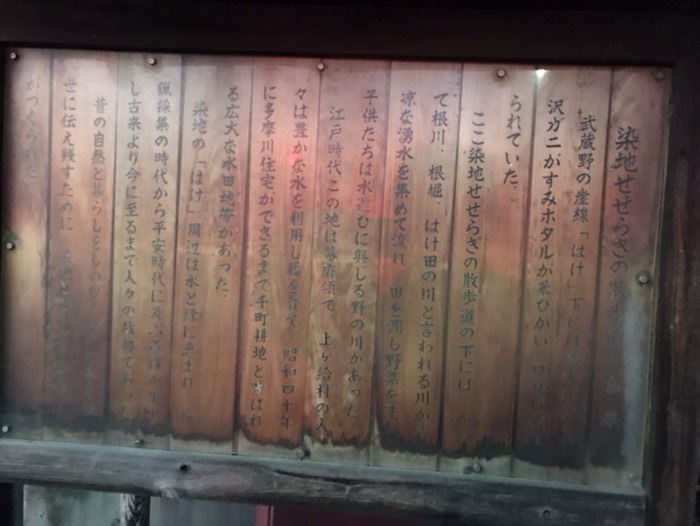 染地せせらぎの散歩道
武蔵野の崖線「はけ」下に
沢ガニがすみホタルが飛びかい
られていた。
ここ染地せせらぎの散歩道の下には
て根川、根堀、はけ田の川と言われる川が
凉な湧水を集めて流れ 田を潤し野菜を
子供たちは水遊びに興じる野の川があった
江戸時代この地は幕府領で、上ヶ給村の人
々は豊かな水を利用し稲を育て 昭和四十年
に多摩川住宅ができるまで千町耕地と呼ばれ
る広大な水田地帯があった。
染地の「はけ」周辺は水と緑に恵まれ
猟採集の時代から平安時代に及ぶ遺跡が
し古来より今に至るまで人々の故郷で
昔の自然と暮らしをしのび
世に伝え残すために
がつくられた